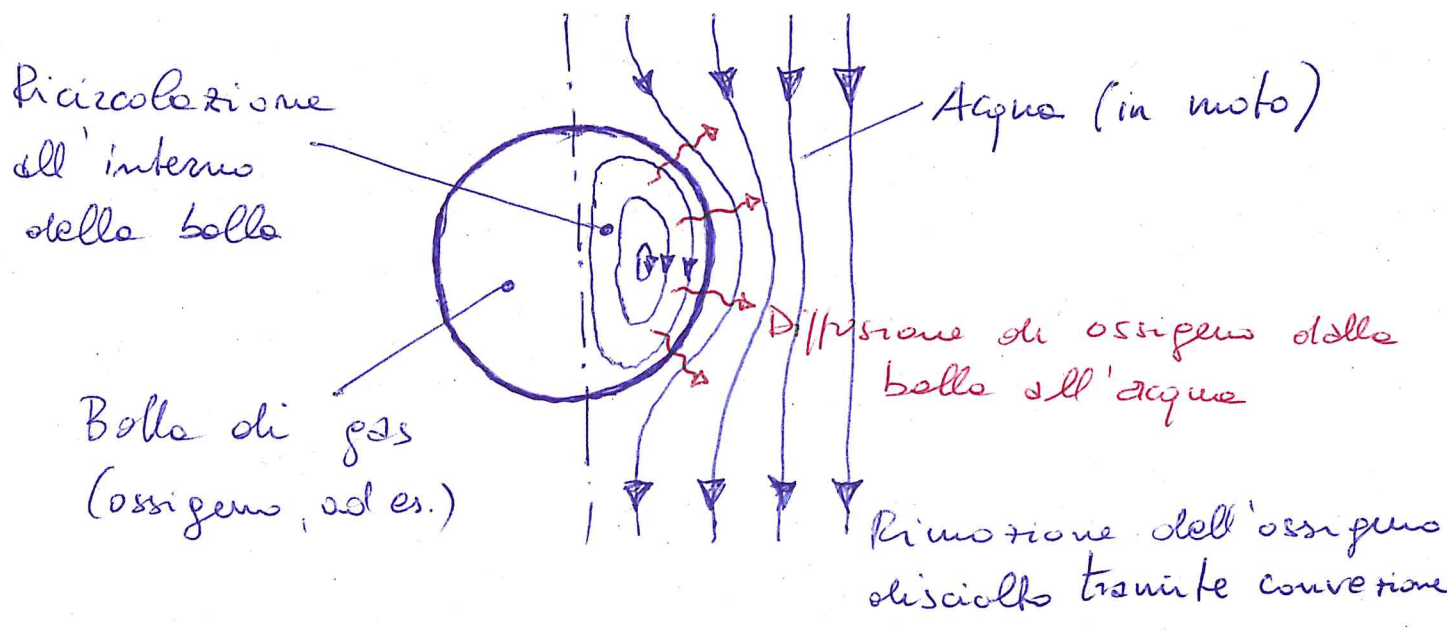 Ricircolazione
all'interno
della bolla
Acqua (in moto)
Diffusione di ossigeno dalla
bolla all'acqua
Bolla di gas
(ossigeno, ad es.)
Rimozione dell'ossigeno
disciolto tramite convezione